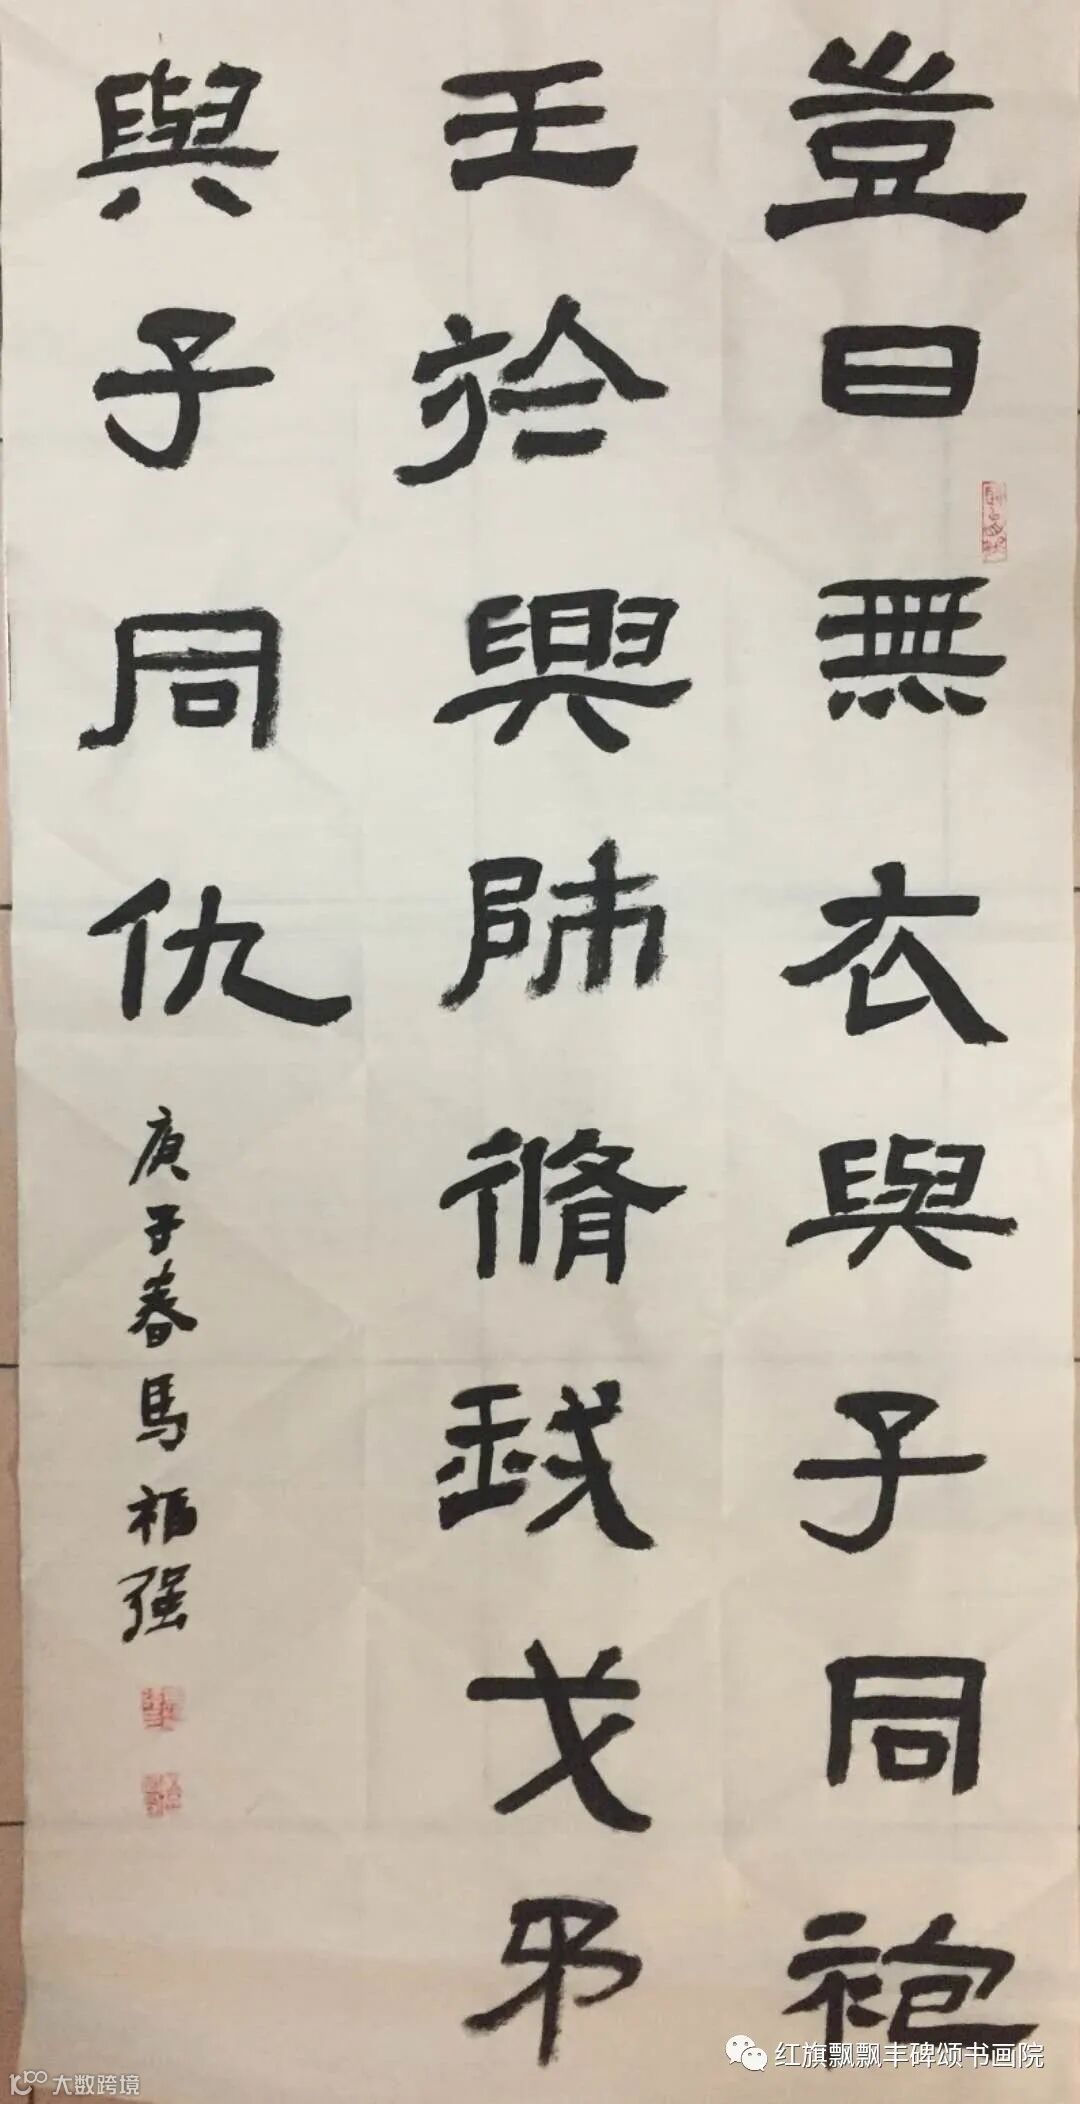 豈曰無衣與子同袍
王於興師脩我戈矛
與子同仇
庚子春馬福强
红旗飘飘丰碑颂书画院
大数跨境